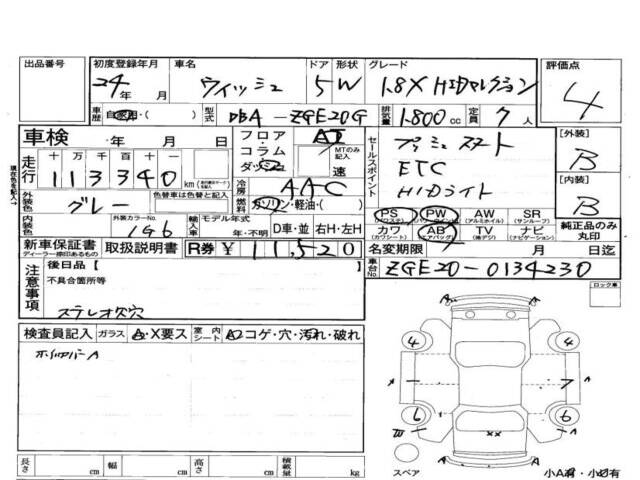 出品番号
初度登録年月 車名 ドア 形状 グレード 評価点
24年 月 ウィッシュ 5W 1.8X HIDセレクション 4
車歴 自家用・( ) 型式 DBA-ZGE20G 排気量 1.800cc 定員 7人
車検 年 月 日 フロア・コラム・ダッシュ AT MTのみ記入 速
走行 十万千百十一 113340 km
冷房 AAC
セールスポイント プッシュスタート
ETC
HIDライト
[外装] B
[内装] B
外装色 グレー 色替車は色替と記入 燃料 ガソリン・軽油・( )
内装色 外装カラーNo. 1G6 輸入車 モデル年式 年・不明 D車・並 右H・左H
PS (パワステ) PW (パワーウインド) AW (アルミホイル) SR (サンルーフ)
カワ (カワシート) AB (エアバッグ) TV (テレビ) ナビ (ナビゲーション)
純正品のみ丸印
新車保証書 ディーラー捺印あるもの 取扱説明書 R券 ¥11,520
名変期限 月 日迄
車台No. ZGE20-0134230
注意事項 後日品[ ]
不具合箇所等
ステレオ欠穴
ロック車
検査員記入 ガラス A・X要ス 室内シート A・コゲ・穴・汚れ・破れ
ホイルカバーA
4 4
A
X 7 A
6 6
W A
XX
A
スペア
小A有・小U有
長さ cm 幅 cm 高さ cm 積載量 kg
現在色を記入→